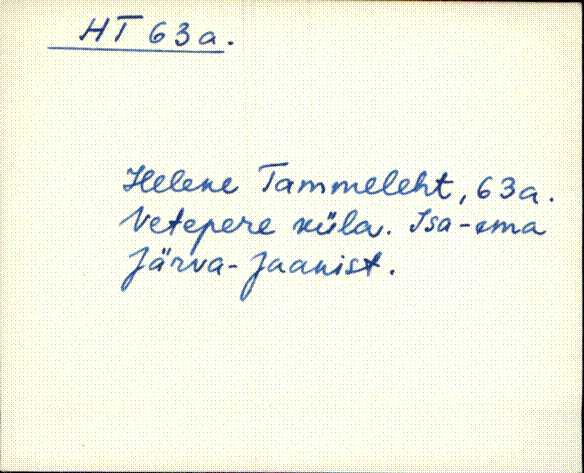 HT 63a.
Helene Tammeleht, 63a.
Vetepere küla. Isa-ema
Järva-Jaanist.